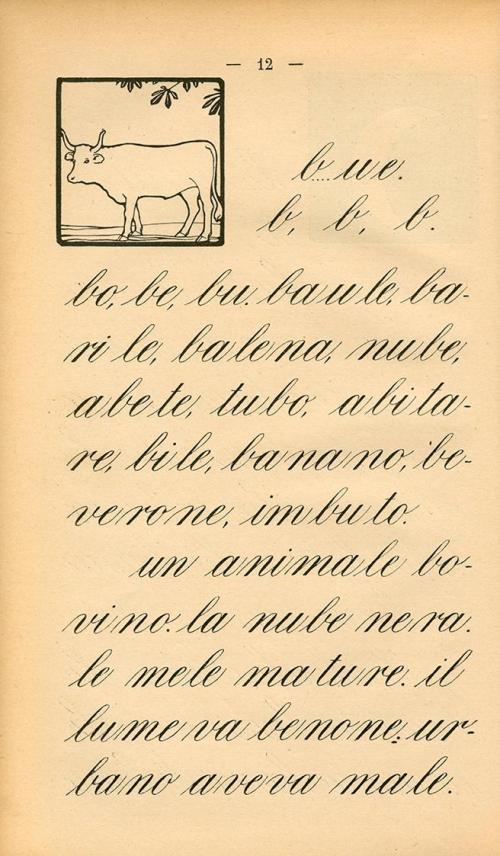 — 12 —
bue.
b, b, b.
bo, be, bu. baule, ba-
rile, balena, nube,
abete, tubo, abita-
re, bile, banano, be-
verone, imbuto.
un animale bo-
vino. la nube nera.
le mele mature. il
lume va benone; ur-
bano aveva male.